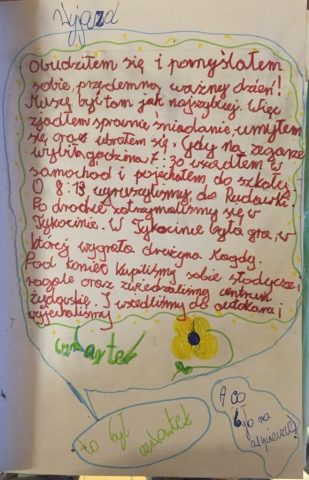 Wyjazd
obudziłem się i pomyślałem
sobie, przedemną ważny dzień!
Muszę być tam jak najszybciej. Więc
zjadłem sprawnie śniadanie, umyłem
się oraz ubrałem się. Gdy na zegarze
wybiła godzina 7:30 wsiadłem w
samochod i pojechałem do szkoły.
O 8:13 wyruszyliśmy do Rudawki.
Po drodze zatrzymaliśmy się w
Tykocinie. W Tykocinie była gra, w
której wygrała drużyna Magdy.
Pod koniec kupiliśmy sobie słodycze i
oraz zwiedzaliśmy centrum
żydowskie. I wsiedliśmy do autokaru i
wyjechaliśmy
czwartek
to był
czwartek
A co
było na